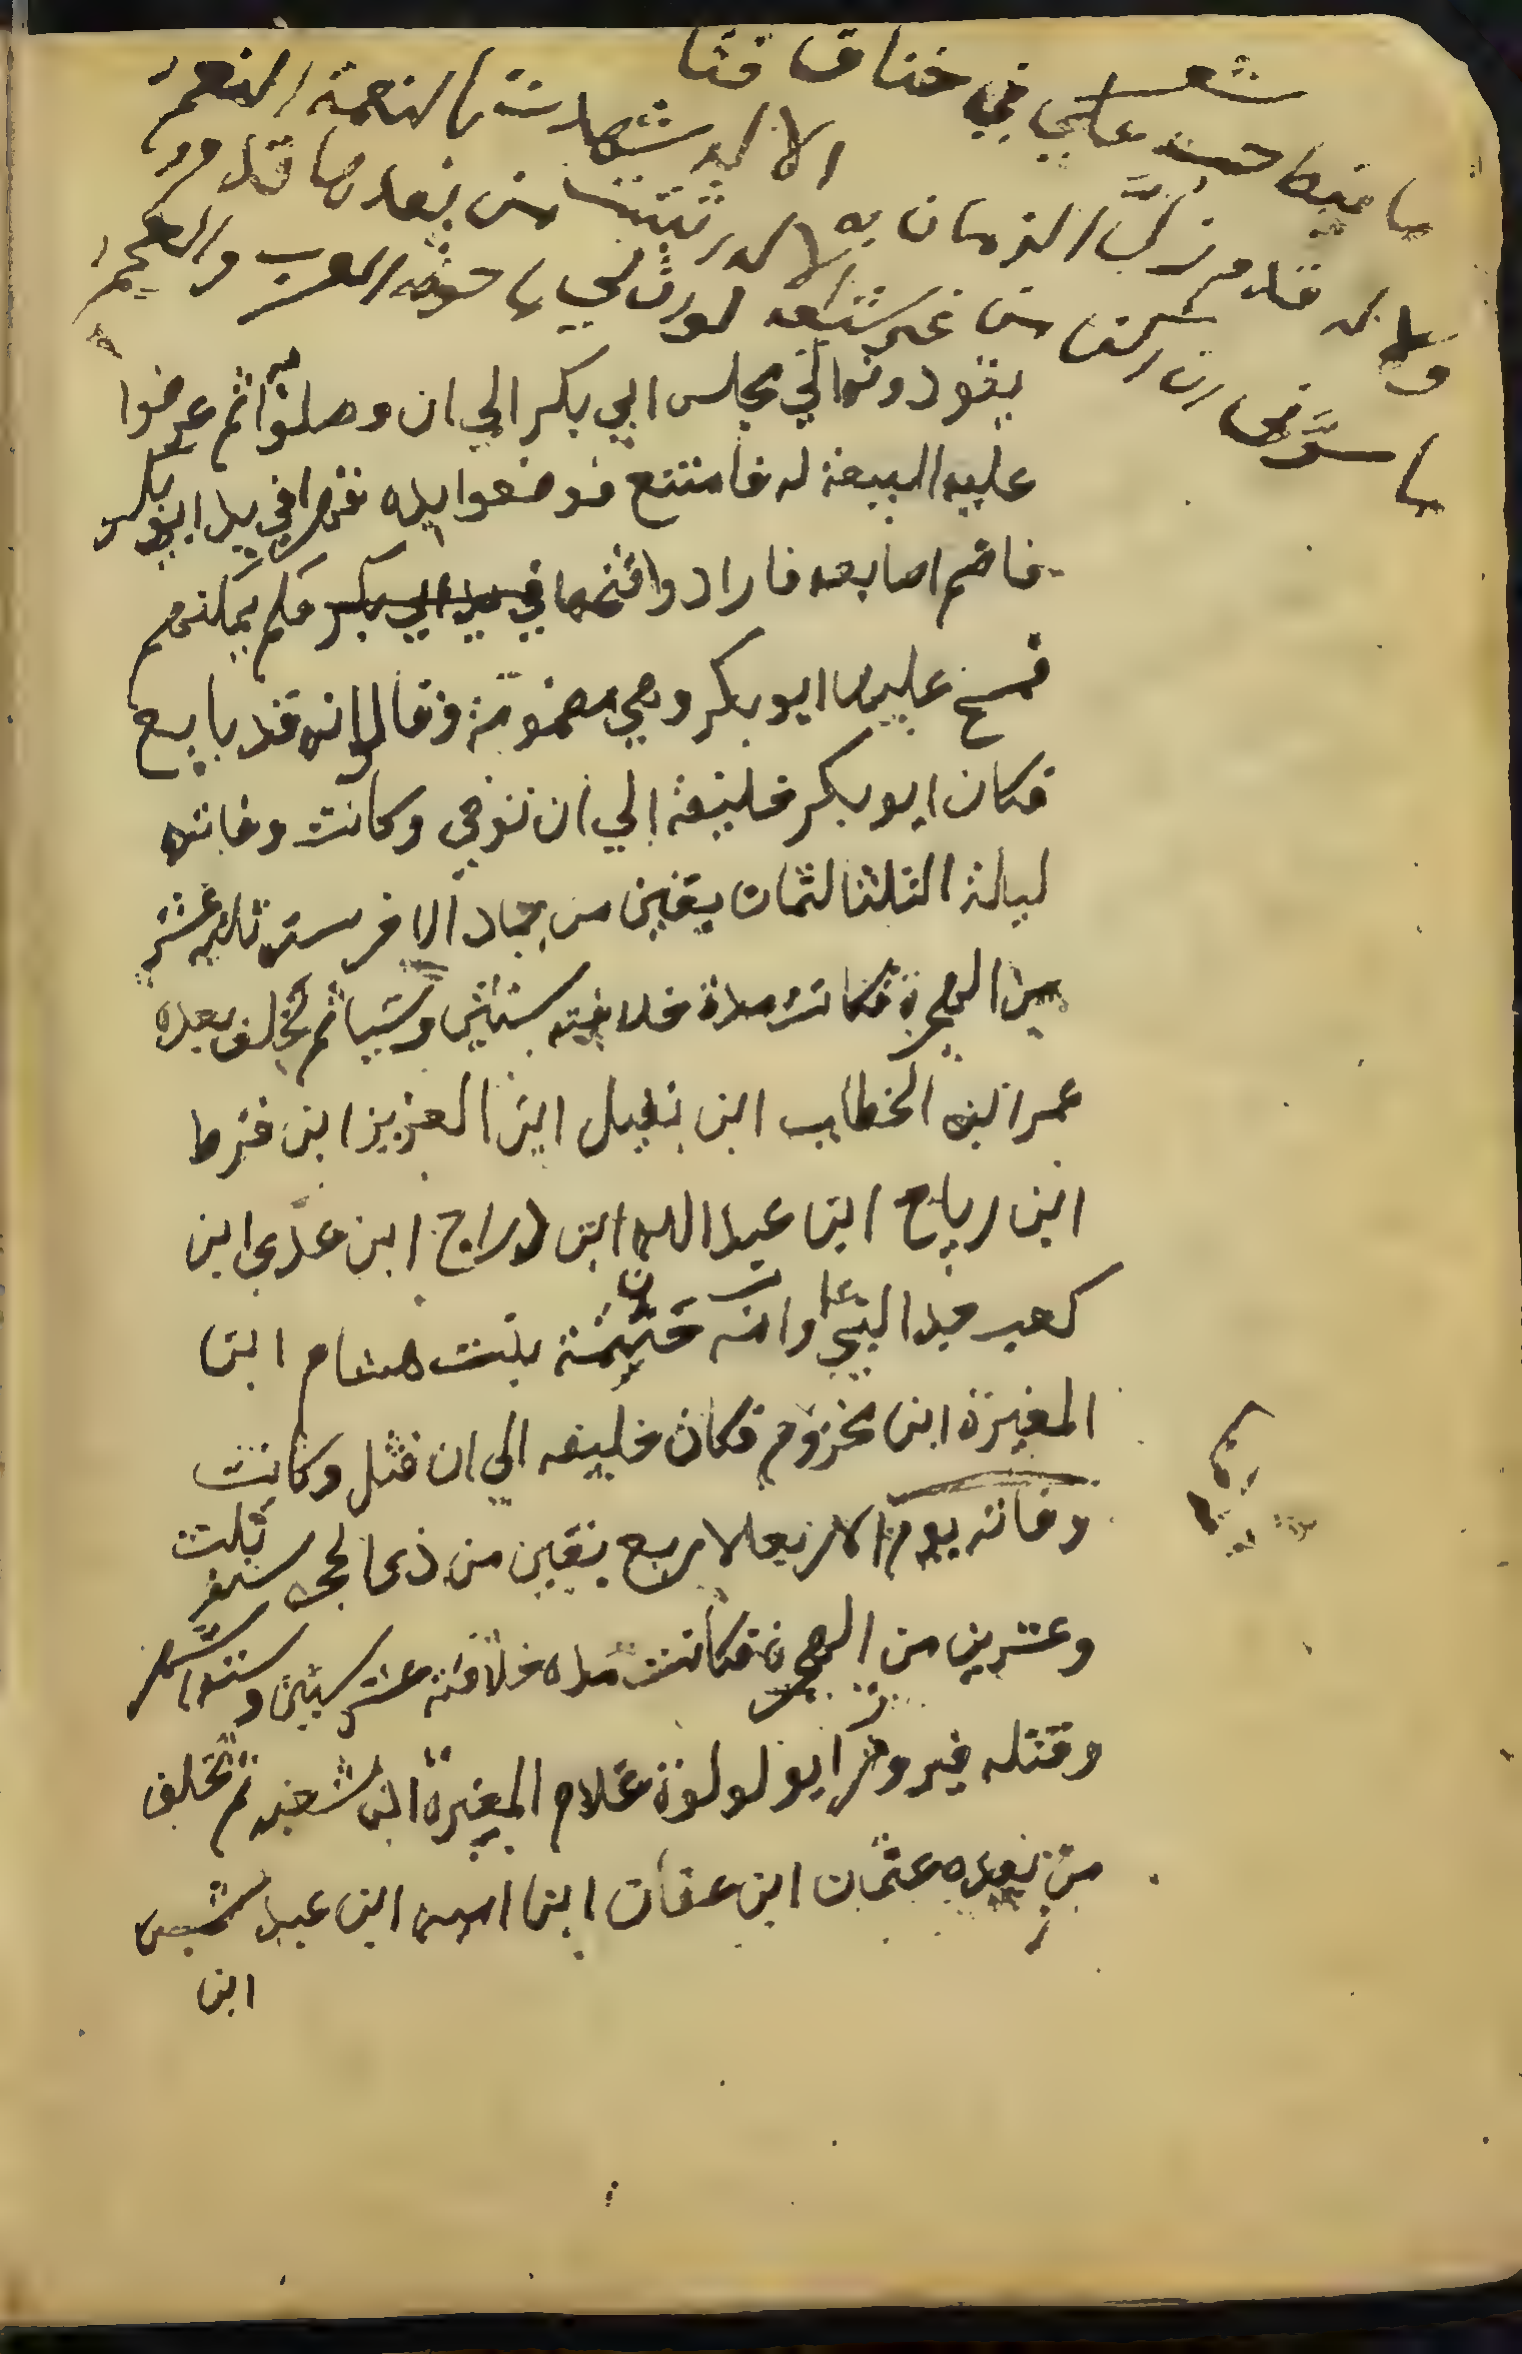 شعر
ما خط حب علي في خناق فتا
الا له شهدت بالنعمة النعم
ولا له قدم زل الزمان به
الا له ثبتت من بعدها قدم
ما سرني ان اكن من غير شيعته
لو ان لي ما حوته العرب والعجم
يقودونه الي مجلس ابي بكر الي ان وصلوا ثم عرضوا
عليه البيعة له فامتنع فوضعوا يده في يد ابو بكر
فاضم اصابعه فارادوا فتحها في يد ابي بكر فلم يمكنهم
فمسح عليها ابو بكر وهي مضمومة وقالوا انه قد بايع
فكان ابو بكر خليفة الي ان توفي وكانت وفاته
ليلة الثلثا لثمان بقين من جماد الاخر سنة ثلثه عشر
من الهجرة فكانت مدة خلافته سنتين وشيا ثم تخلف بعده
عمر ابن الخطاب ابن نفيل ابن العزيز ابن قرط
ابن رياح ابن عبد الله ابن دراج ابن عدي ابن
كعب جد النبي وامه حتيمة بنت هشام ابن
المغيرة ابن مخزوم فكان خليفه الي ان قتل وكانت
وفاته يوم الاربعا لاربع بقين من ذي الحجه سنة ثلث
وعشرين من الهجرة فكانت مده خلافته عشر سنين وستة اشهر
وقتله فيروز ابو لولوة غلام المغيرة ابن شعبه ثم تخلف
من بعده عثمان ابن عفان ابن اميه ابن عبد شمس
ابن